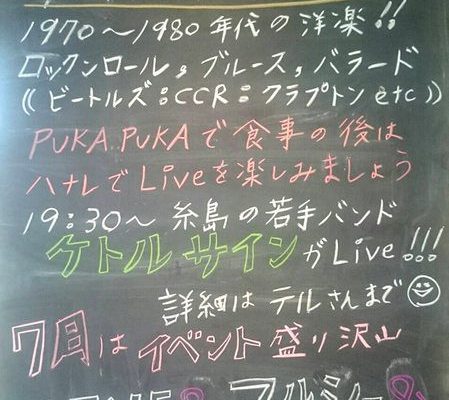 1970〜1980年代の洋楽!!
ロックンロール,ブルース,バラード
((ビートルズ:CCR:クラプトン etc))
PUKA.PUKAで食事の後は
ハナレでLiveを楽しみましょう
19:30〜 糸島の若手バンド
ケトルサインがLive!!!
詳細はテルさんまで
7月はイベント盛り沢山